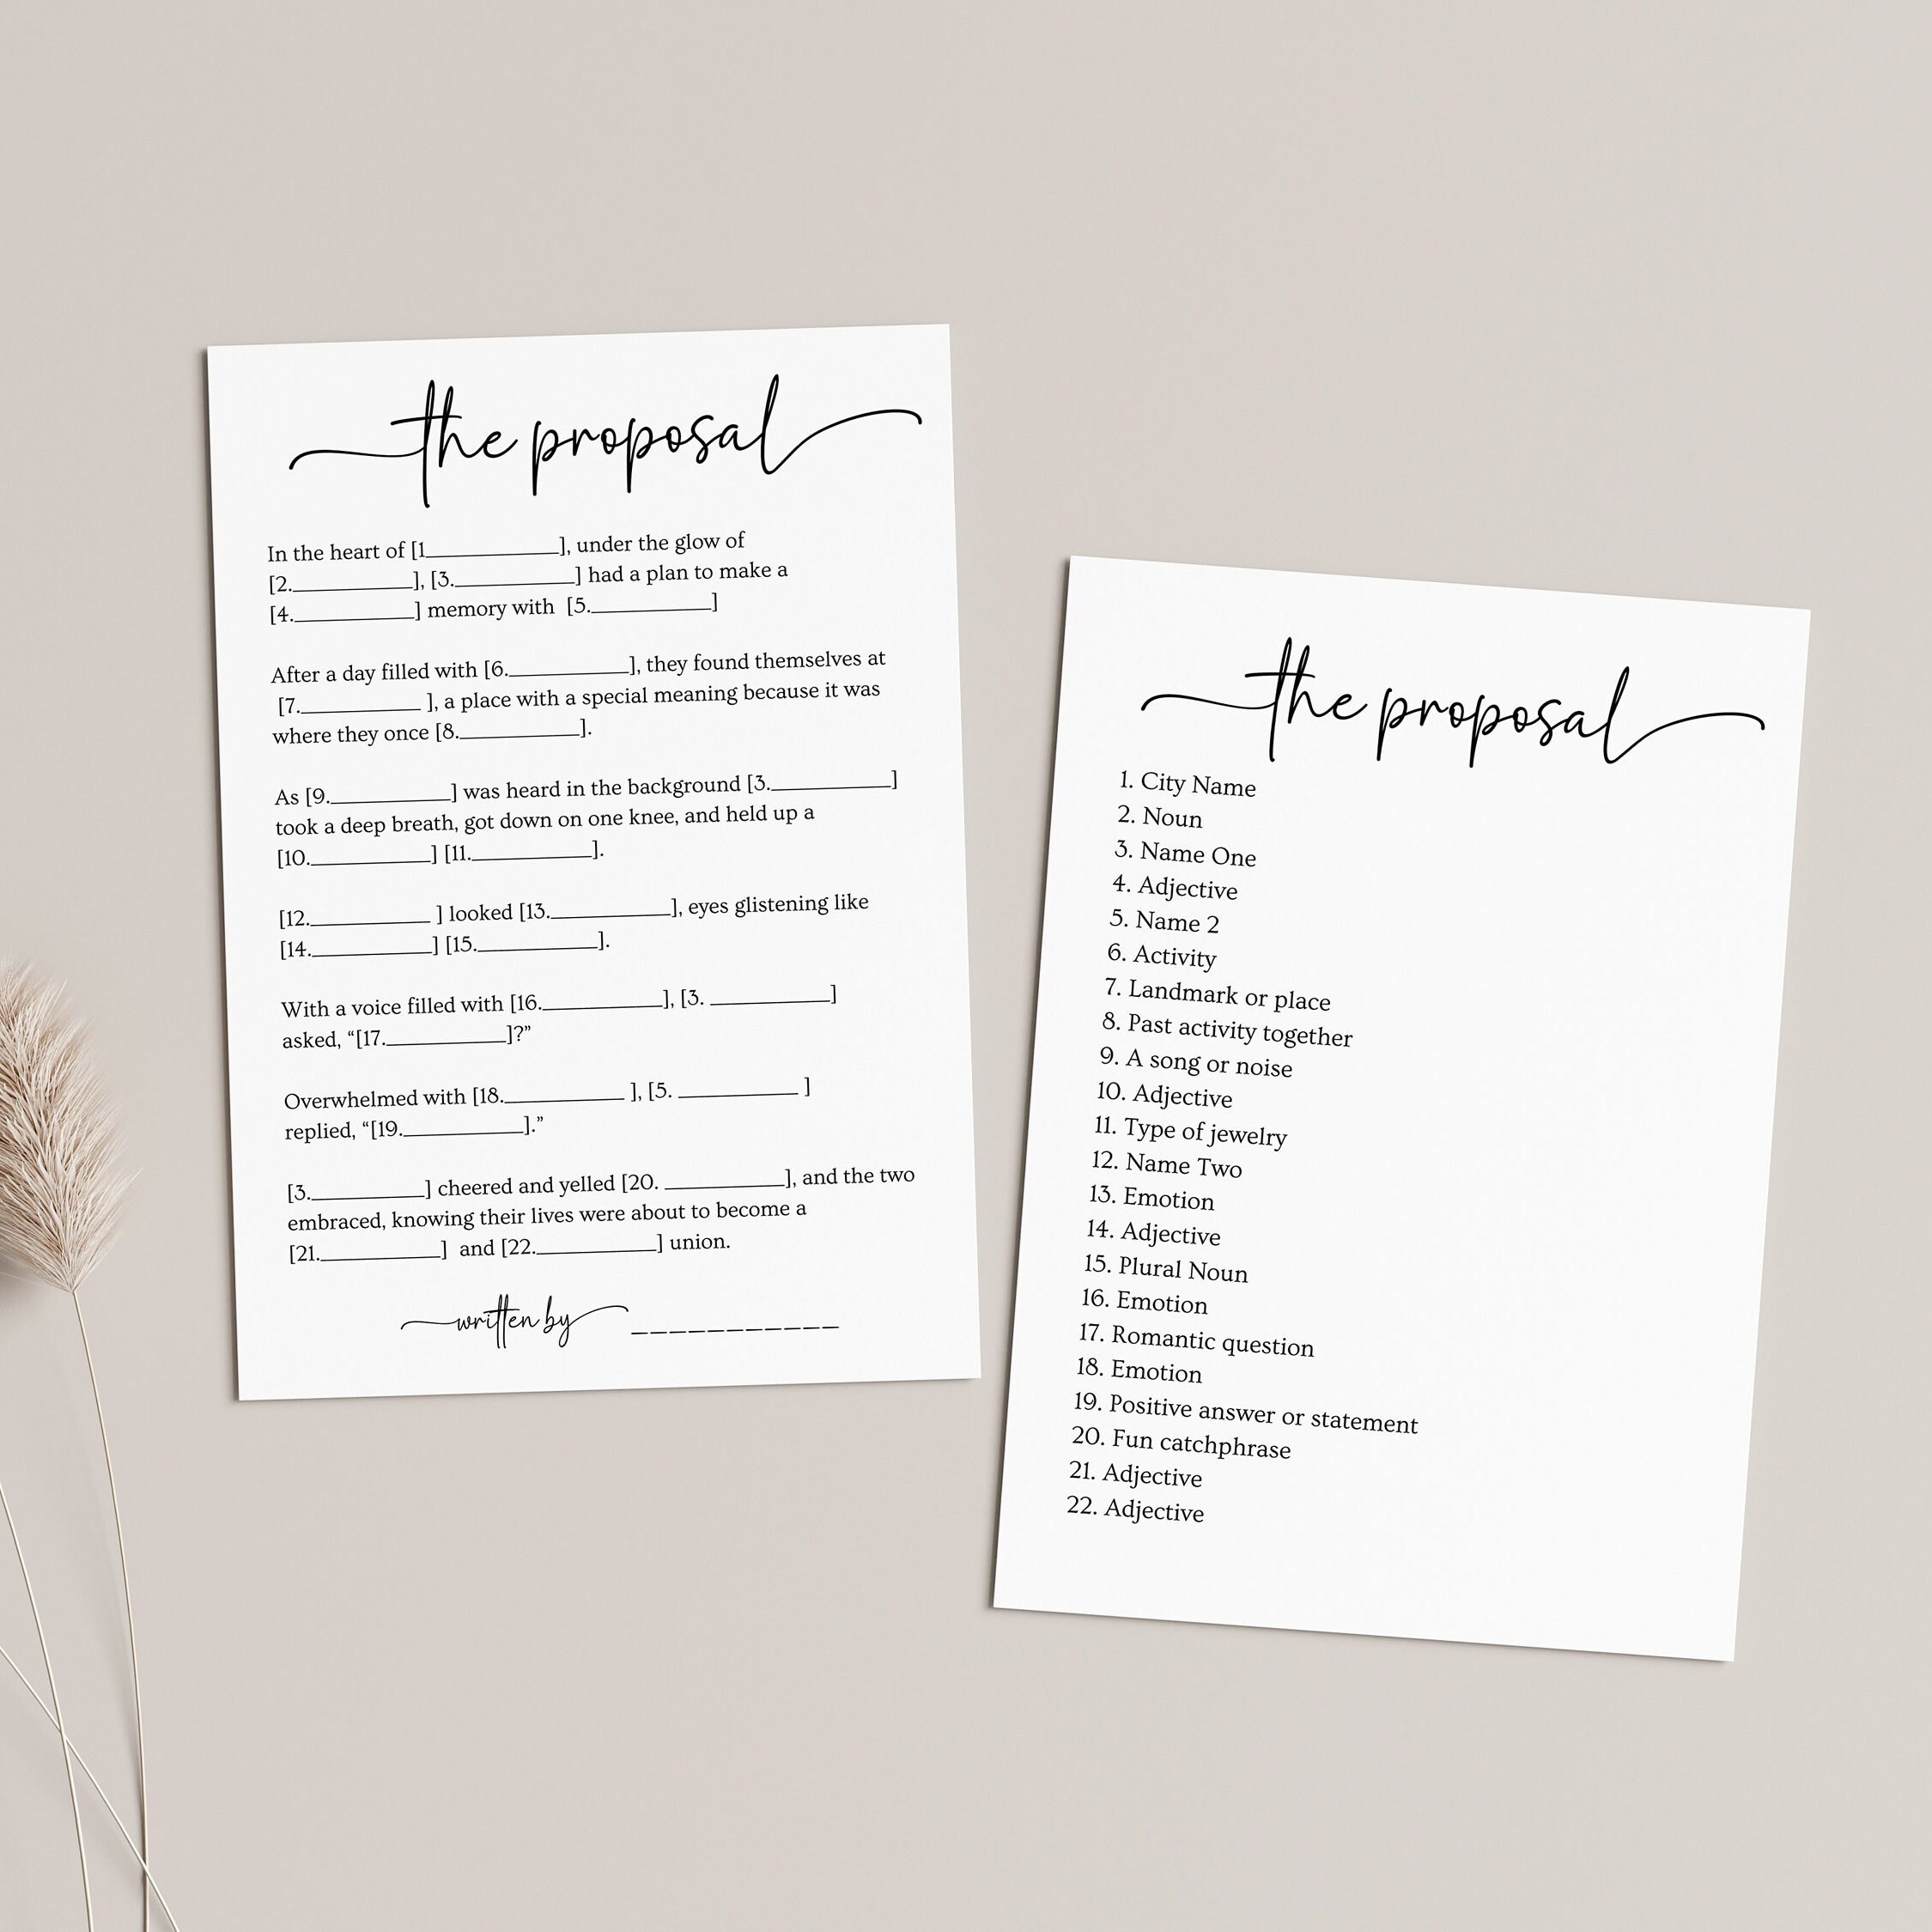 the proposal
In the heart of [1______________], under the glow of
[2.____________], [3.____________] had a plan to make a
[4.____________] memory with [5.____________]
After a day filled with [6.____________], they found themselves at
[7.____________ ], a place with a special meaning because it was
where they once [8.____________].
As [9.____________] was heard in the background [3.____________]
took a deep breath, got down on one knee, and held up a
[10.____________] [11.____________].
[12.____________ ] looked [13.____________], eyes glistening like
[14.____________] [15.____________].
With a voice filled with [16.____________], [3. ____________]
asked, “[17.____________]?”
Overwhelmed with [18.____________ ], [5. ____________ ]
replied, “[19.____________].”
[3.____________] cheered and yelled [20. ____________], and the two
embraced, knowing their lives were about to become a
[21.____________] and [22.____________] union.
written by ___________
the proposal
1. City Name
2. Noun
3. Name One
4. Adjective
5. Name 2
6. Activity
7. Landmark or place
8. Past activity together
9. A song or noise
10. Adjective
11. Type of jewelry
12. Name Two
13. Emotion
14. Adjective
15. Plural Noun
16. Emotion
17. Romantic question
18. Emotion
19. Positive answer or statement
20. Fun catchphrase
21. Adjective
22. Adjective